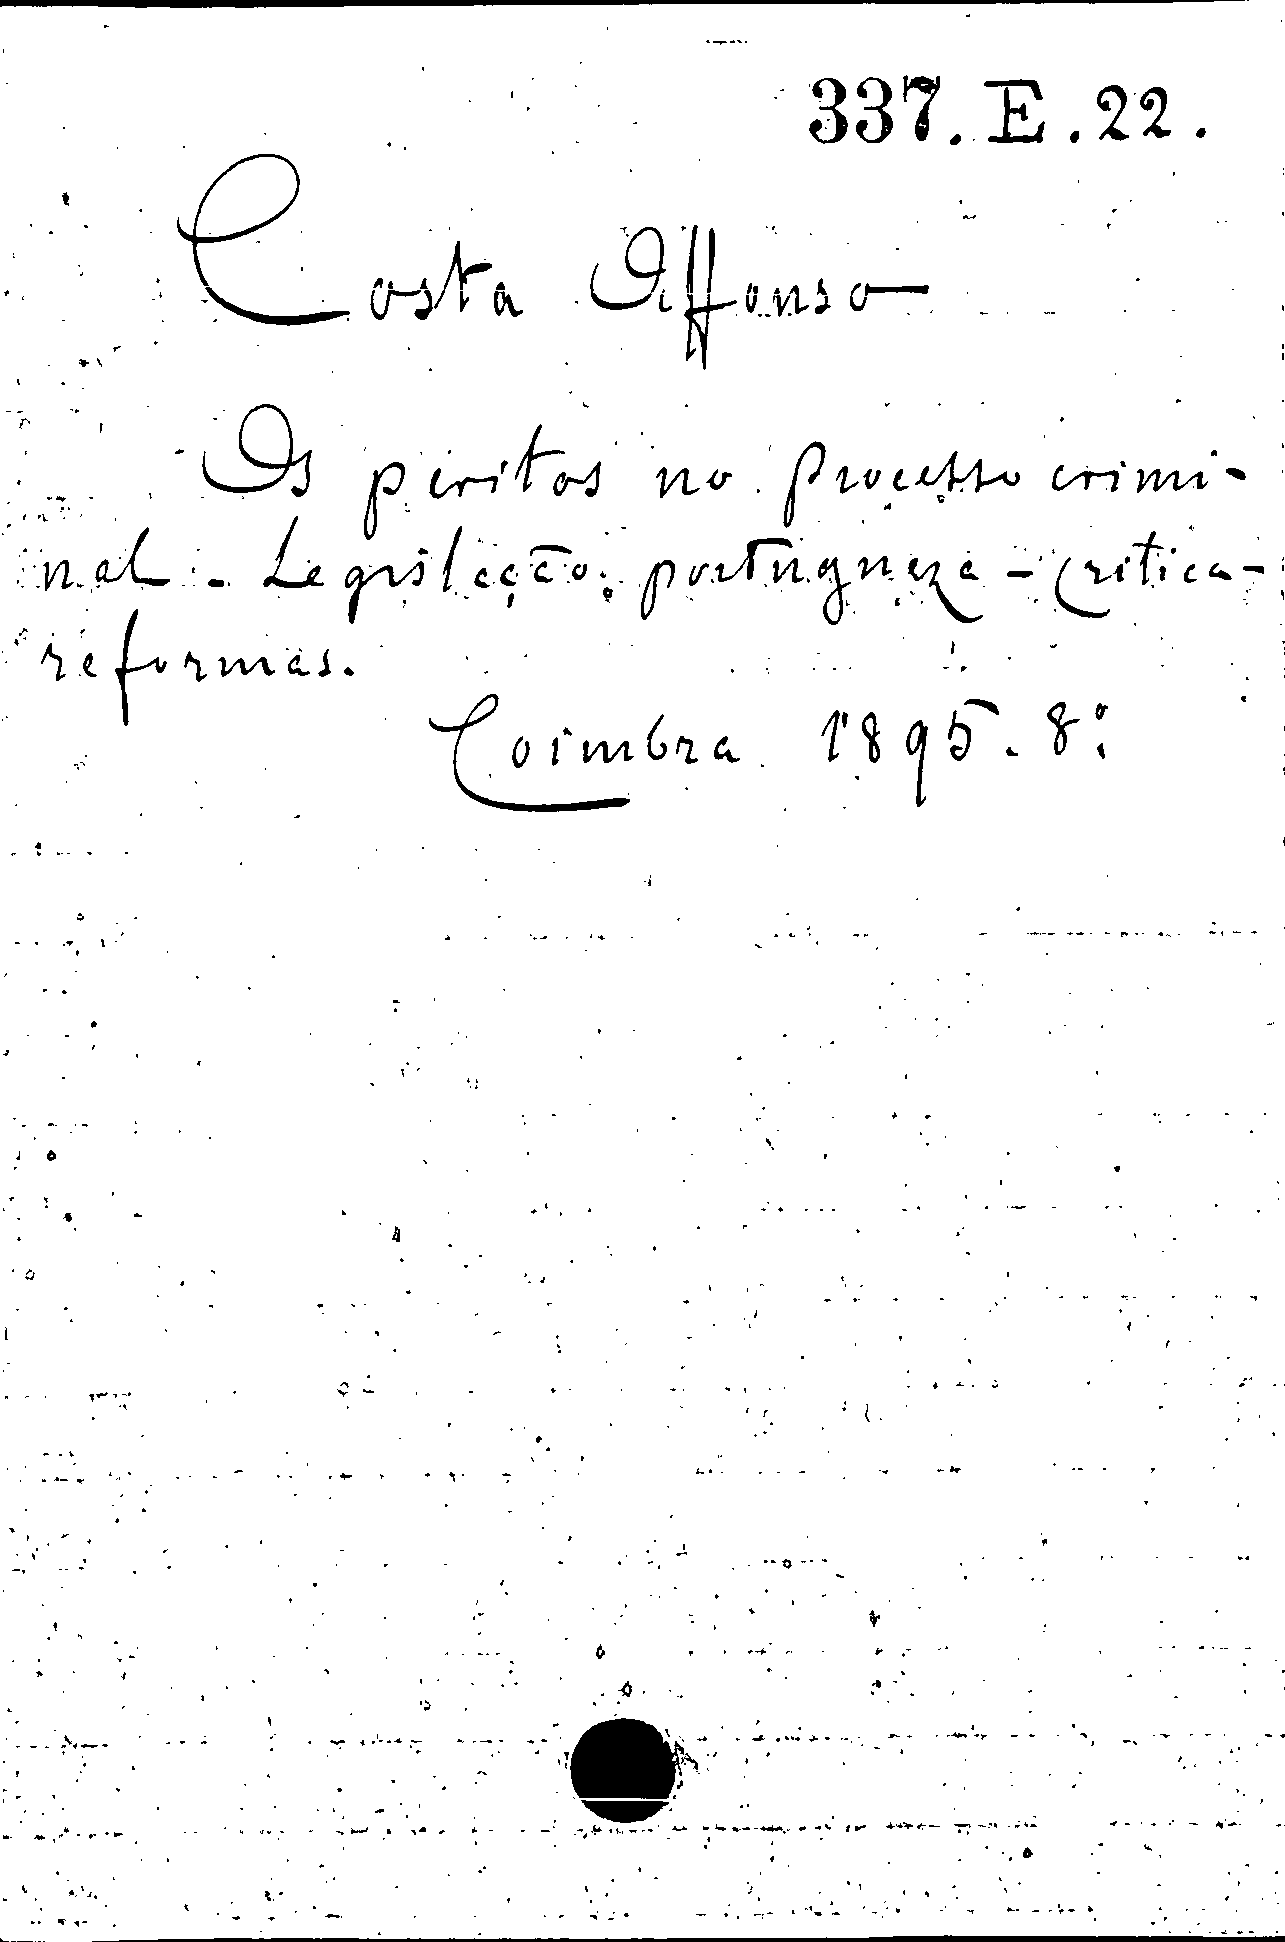 337. E. 22.
Costa Affonso
Os peritos no processo crimi-
nal - Legislação portugueza - critica -
reformas.
Coimbra 1895. 8º